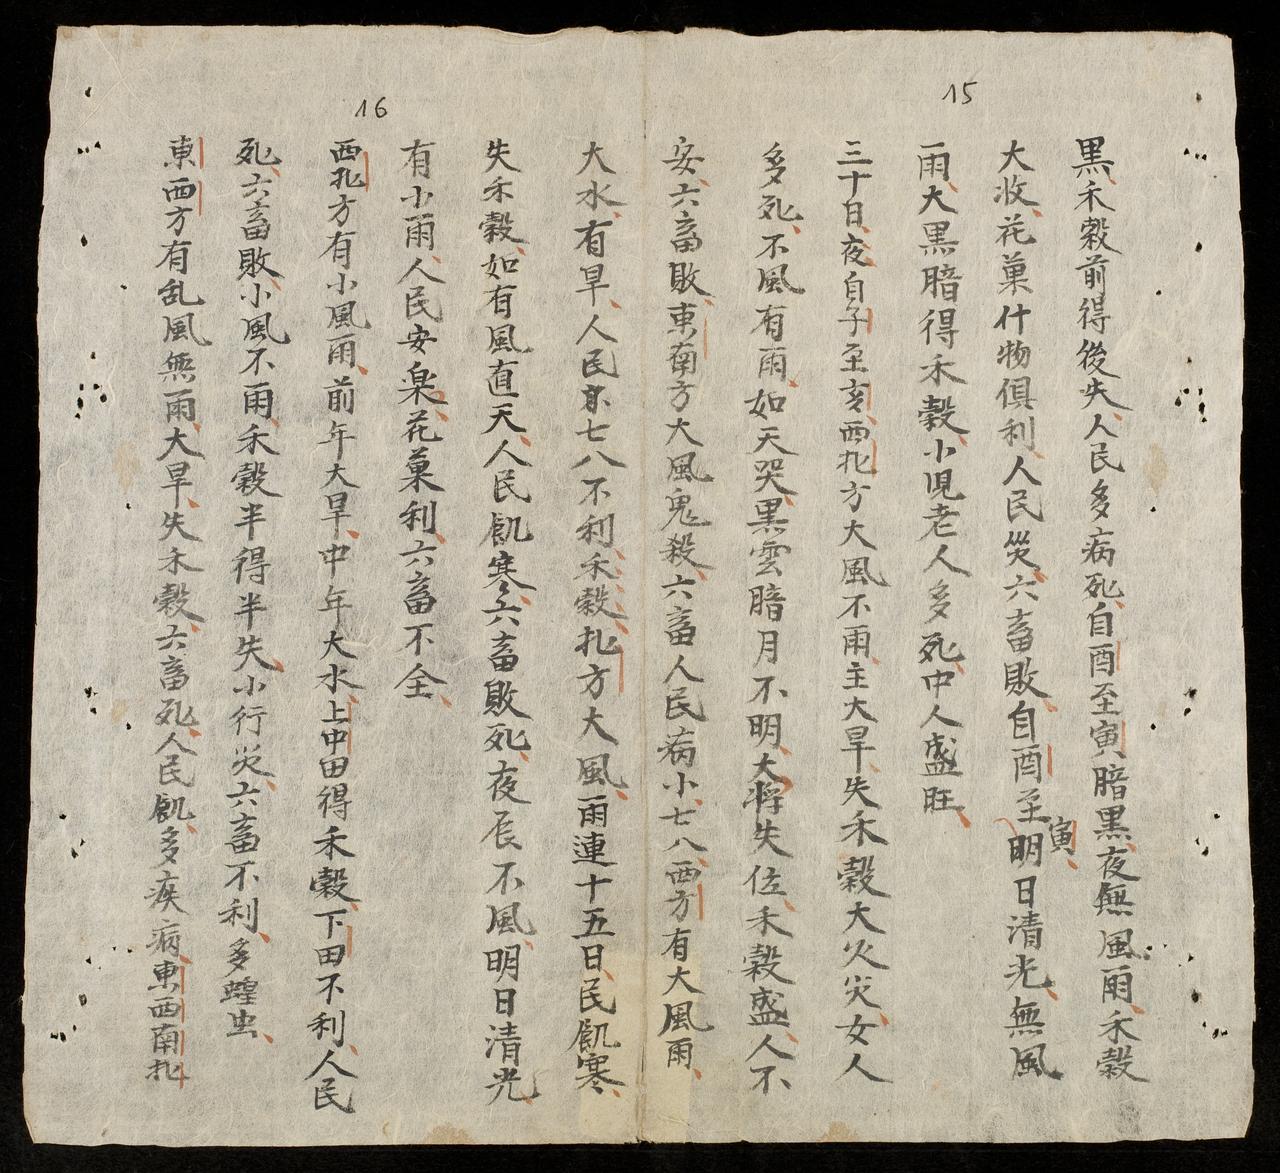 15
黑、禾穀前得後失、人民多病死、自酉至寅暗黑、夜無風雨、禾穀
大收、花菓什物俱利、人民災、六畜敗、自酉至寅、明日清光、無風
雨、大黑暗得禾穀、小児老人多死、中人盛旺、
三十日、夜自子至亥、西北方大風不雨、主大旱、失禾穀大火災、女人
多死、不風有雨、如天哭、黑雲暗月不明、大将失位、禾穀盛、人不
安、六畜敗、東南方大風鬼殺、六畜人民病小七八、西方有大風雨、
16
大水、有旱、人民京七八不利、禾穀、北方大風、雨連十五日、民飢寒、
失禾穀、如有風直天、人民飢寒、六畜敗死、夜辰不風、明日清光、
有小雨、人民安楽、花菓利、六畜不全、
西北方有小風雨、前年大旱、中年大水、上中田得禾穀、下田不利、人民
死、六畜敗、小風不雨、禾穀半得半失、小行災、六畜不利、多蝗虫、
東西方有乱風無雨、大旱、失禾穀、六畜死、人民飢、多疾病、東西南北